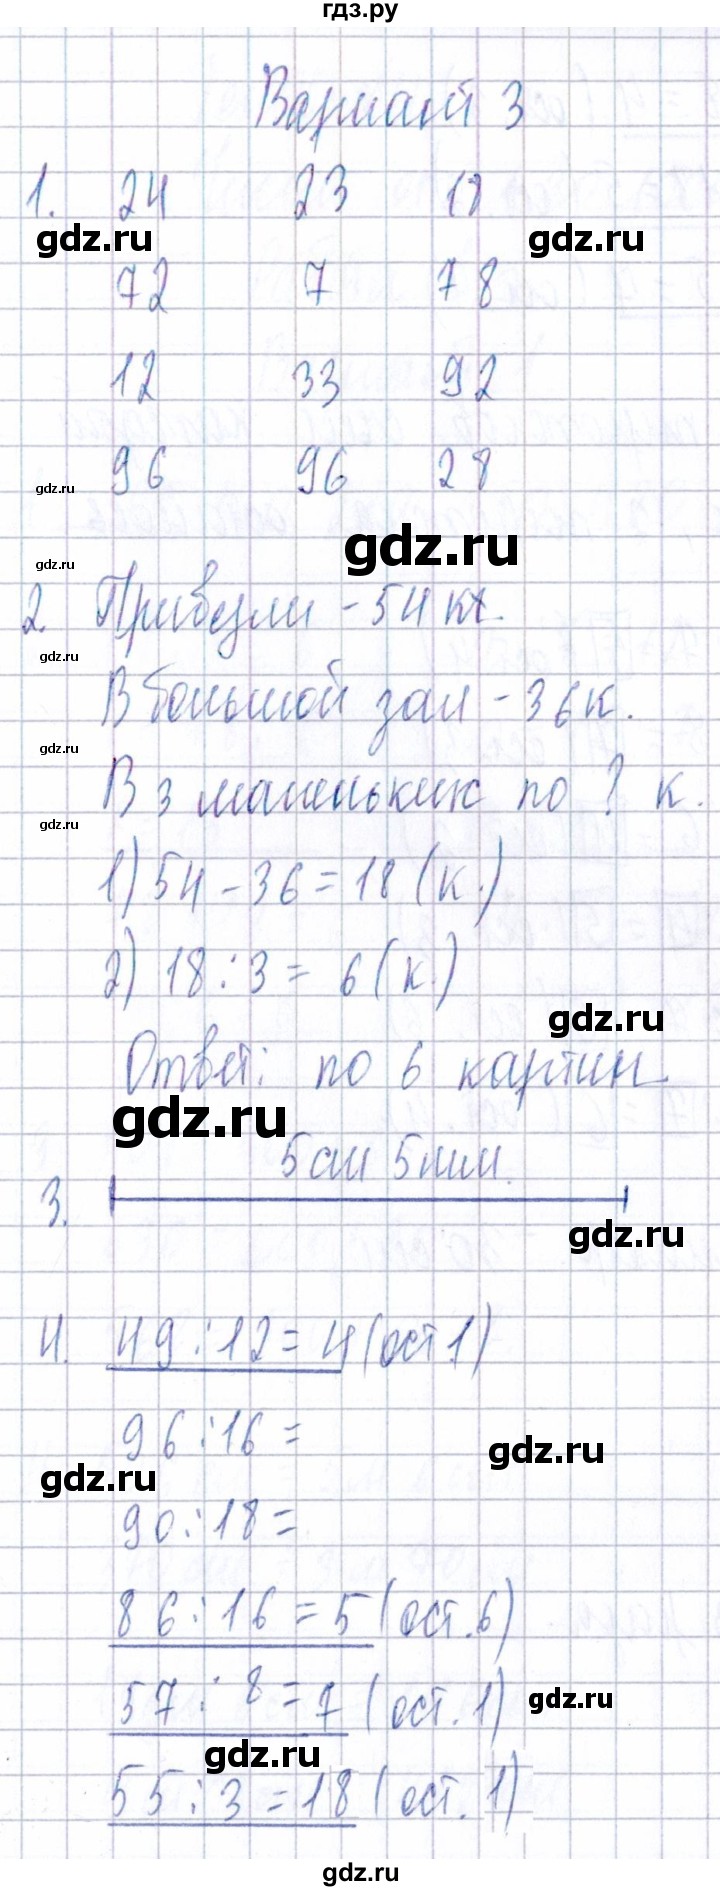 гдз.ру
Вариант 3
1. 24 23 18
gdz.ru gdz.ru
72 7 78
12 33 92
96 96 28
gdz.ru
gdz.ru
gdz.ru
2. Привезли - 54 к.
gdz.ru
В большой зал - 36 к.
gdz.ru
В 3 маленьких по ? к.
gdz.ru
1) 54 - 36 = 18 (к.)
2) 18 : 3 = 6 (к.)
gdz.ru
Ответ: по 6 картин
gdz.ru
5 см 5 мм.
3.
gdz.ru
4. 49 : 12 = 4 (ост 1)
96 : 16 =
gdz.ru
gdz.ru
90 : 18 =
86 : 16 = 5 (ост. 6)
57 : 8 = 7 (ост. 1)
gdz.ru
gdz.ru
55 : 3 = 18 (ост. 1)
gdz.ru